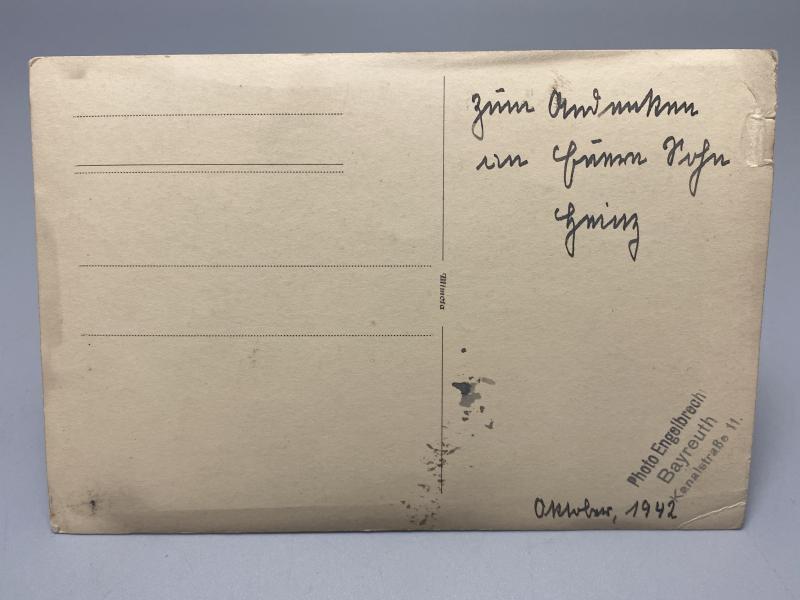 Zum Andenken
an Euern Sohn
Heinz
Mimosa
Photo Engelbrecht
Bayreuth
Kanalstraße 11.
Oktober, 1942